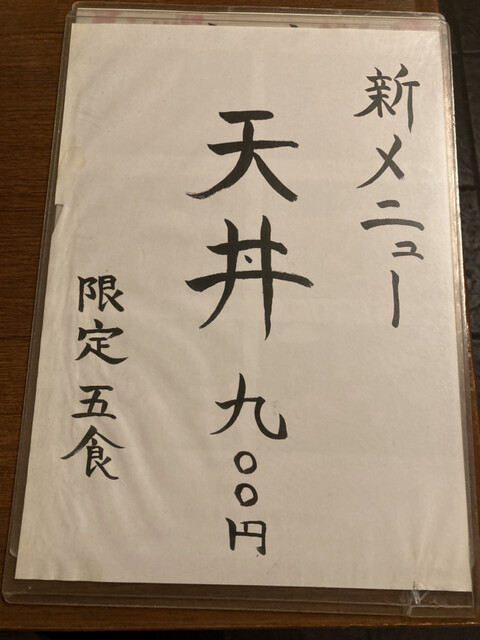 新メニュー
天丼 九〇〇円
限定五食